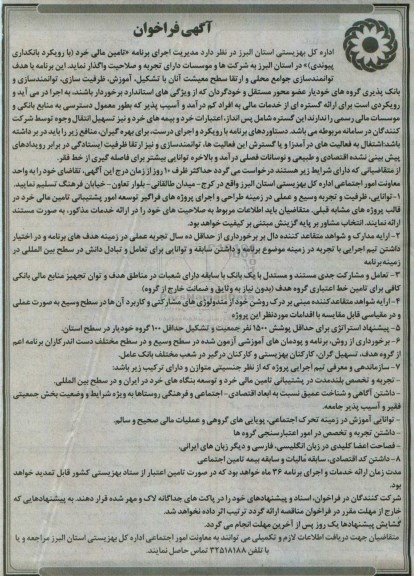 آگهی فراخوان
اداره کل بهزیستی استان البرز در نظر دارد مدیریت اجرای برنامه «تامین مالی خرد (با رویکرد بانکداری
پیوندی)» در استان البرز به شرکت ها و موسسات دارای تجربه و صلاحیت واگذار نماید. این برنامه با هدف
توانمندسازی جوامع محلی و ارتقا سطح معیشت آنان با تشکیل، آموزش، ظرفیت سازی، توانمندسازی و
بانک پذیری گروه های خودیار عضو محور مستقل و خودگردان که از ویژگی های استاندارد برخوردار باشند، به اجرا در می آید و
رویکردی است برای ارائه گستره ای از خدمات مالی به افراد کم درآمد و آسیب پذیر که بطور معمول دسترسی به منابع بانکی و
موسسات مالی رسمی را ندارند این گستره شامل پس انداز، اعتبارات خرد و بیمه های خرد و نیز تسهیل انتقال وجوه توسط شرکت
کنندگان در سامانه مربوطه می باشد. دستاوردهای برنامه با رویکرد و اجرای درست، برای بهره گیران، منافع زیر را باید در بر داشته
باشد: اشتغال به فعالیت های درآمدزا و یا گسترش این فعالیت ها، توانمندسازی و نیز ارتقا ظرفیت ایستادگی در برابر رویدادهای
پیش بینی نشده اقتصادی و طبیعی و نوسانات فصلی درآمد و بالاخره توانایی بیشتر برای فاصله گیری از خط فقر.
از متقاضیانی که دارای شرایط زیر هستند درخواست می گردد حداکثر ظرف ۱۰ روز از زمان درج این آگهی، تقاضای خود را به واحد
معاونت امور اجتماعی اداره کل بهزیستی استان البرز واقع در کرج- میدان طالقانی- بلوار تعاون- خیابان فرهنگ تسلیم نمایید.
۱- توانایی، ظرفیت و تجربه وسیع و عملی در زمینه طراحی و اجرای پروژه های فراگیر توسعه امور پشتیبانی تامین مالی خرد در
قالب پروژه های مشابه قبلی. متقاضیان باید اطلاعات مربوط به صلاحیت های خود را در ارائه خدمات مذکور، به صورت مستند
ارائه نمایند. انتخاب مشاور بر پایه گزینش مبتنی بر کیفیت خواهد بود.
۲- ارایه مدارک و شواهد متقاعد کننده دال بر برخورداری از حداقل ده سال تجربه عملی در زمینه هدف های برنامه و در اختیار
داشتن تیم اجرایی با تجربه در زمینه موضوع برنامه و داشتن سابقه و توانایی برای تعامل و تبادل دانش در سطح بین المللی در
زمینه برنامه
۳- تعامل و مشارکت جدی مستند و مستدل با یک بانک با سابقه دارای شعبات در مناطق هدف و توان تجهیز منابع مالی بانکی
کافی برای تامین خط اعتباری گروه هدف (بدون نیاز به وثایق و ضمانت خارج از گروه)
۴- ارایه شواهد متقاعدکننده مبنی بر درک روشن خود از متدولوژی های مشارکتی و کاربرد آن ها در سطح وسیع به صورت عملی
و در مقیاسی قابل مقایسه با اقدامات موردنظر این پروژه
۵- پیشنهاد استراتژی برای حداقل پوشش ۱۵۰۰ نفر جمعیت و تشکیل حداقل ۱۰۰ گروه خودیار در سطح استان.
۶- برخورداری از روش، برنامه و پودمان های آموزشی آزمون شده در سطح وسیع و در سطح مختلف دست اندرکاران برنامه اعم
از گروه هدف، تسهیل گران، کارکنان بهزیستی و کارکنان درگیر در شعب مختلف بانک عامل.
۷- سازماندهی و معرفی تیم اجرایی پروژه که از نظر جنسیتی متوازن و دارای ترکیب زیر باشد:
- تجربه و تخصص بلندمدت در پشتیبانی تامین مالی خرد و توسعه بنگاه های خرد در ایران و در سطح بین المللی.
- داشتن آگاهی و شناخت عمیق نسبت به ابعاد اقتصادی- اجتماعی و فرهنگی روستاها به ویژه شرایط و وضعیت بخش جمعیتی
فقیر و آسیب پذیر جامعه.
- توانایی آموزش در زمینه تحرک اجتماعی، پویایی های گروهی و عملیات مالی صحیح و سالم.
- داشتن تجربه و تخصص در امور اعتبارسنجی گروه ها
- فصاحت اعضا کلیدی در زبان انگلیسی، فارسی و دیگر زبان های ایرانی.
۸- داشتن کد اقتصادی، سابقه مالیات و سابقه بیمه تامین اجتماعی
مدت زمان ارائه خدمات و اجرای برنامه ۳۶ ماه خواهد بود که در صورت تامین اعتبار از ستاد بهزیستی کشور قابل تمدید خواهد
بود.
شرکت کنندگان در فراخوان، اسناد و پیشنهادهای خود را در پاکت های جداگانه لاک و مهر شده قرار دهند. به پیشنهادهایی که
خارج از مهلت مقرر در فراخوان مناقصه ارائه گردد ترتیب اثر داده نخواهد شد.
گشایش پیشنهادها یک روز پس از آخرین مهلت انجام می گردد.
متقاضیان جهت دریافت اطلاعات لازم و تکمیلی می توانند به معاونت امور اجتماعی اداره کل بهزیستی استان البرز مراجعه و یا
با تلفن ۳۲۵۱۸۱۸۸ تماس حاصل نمایند.